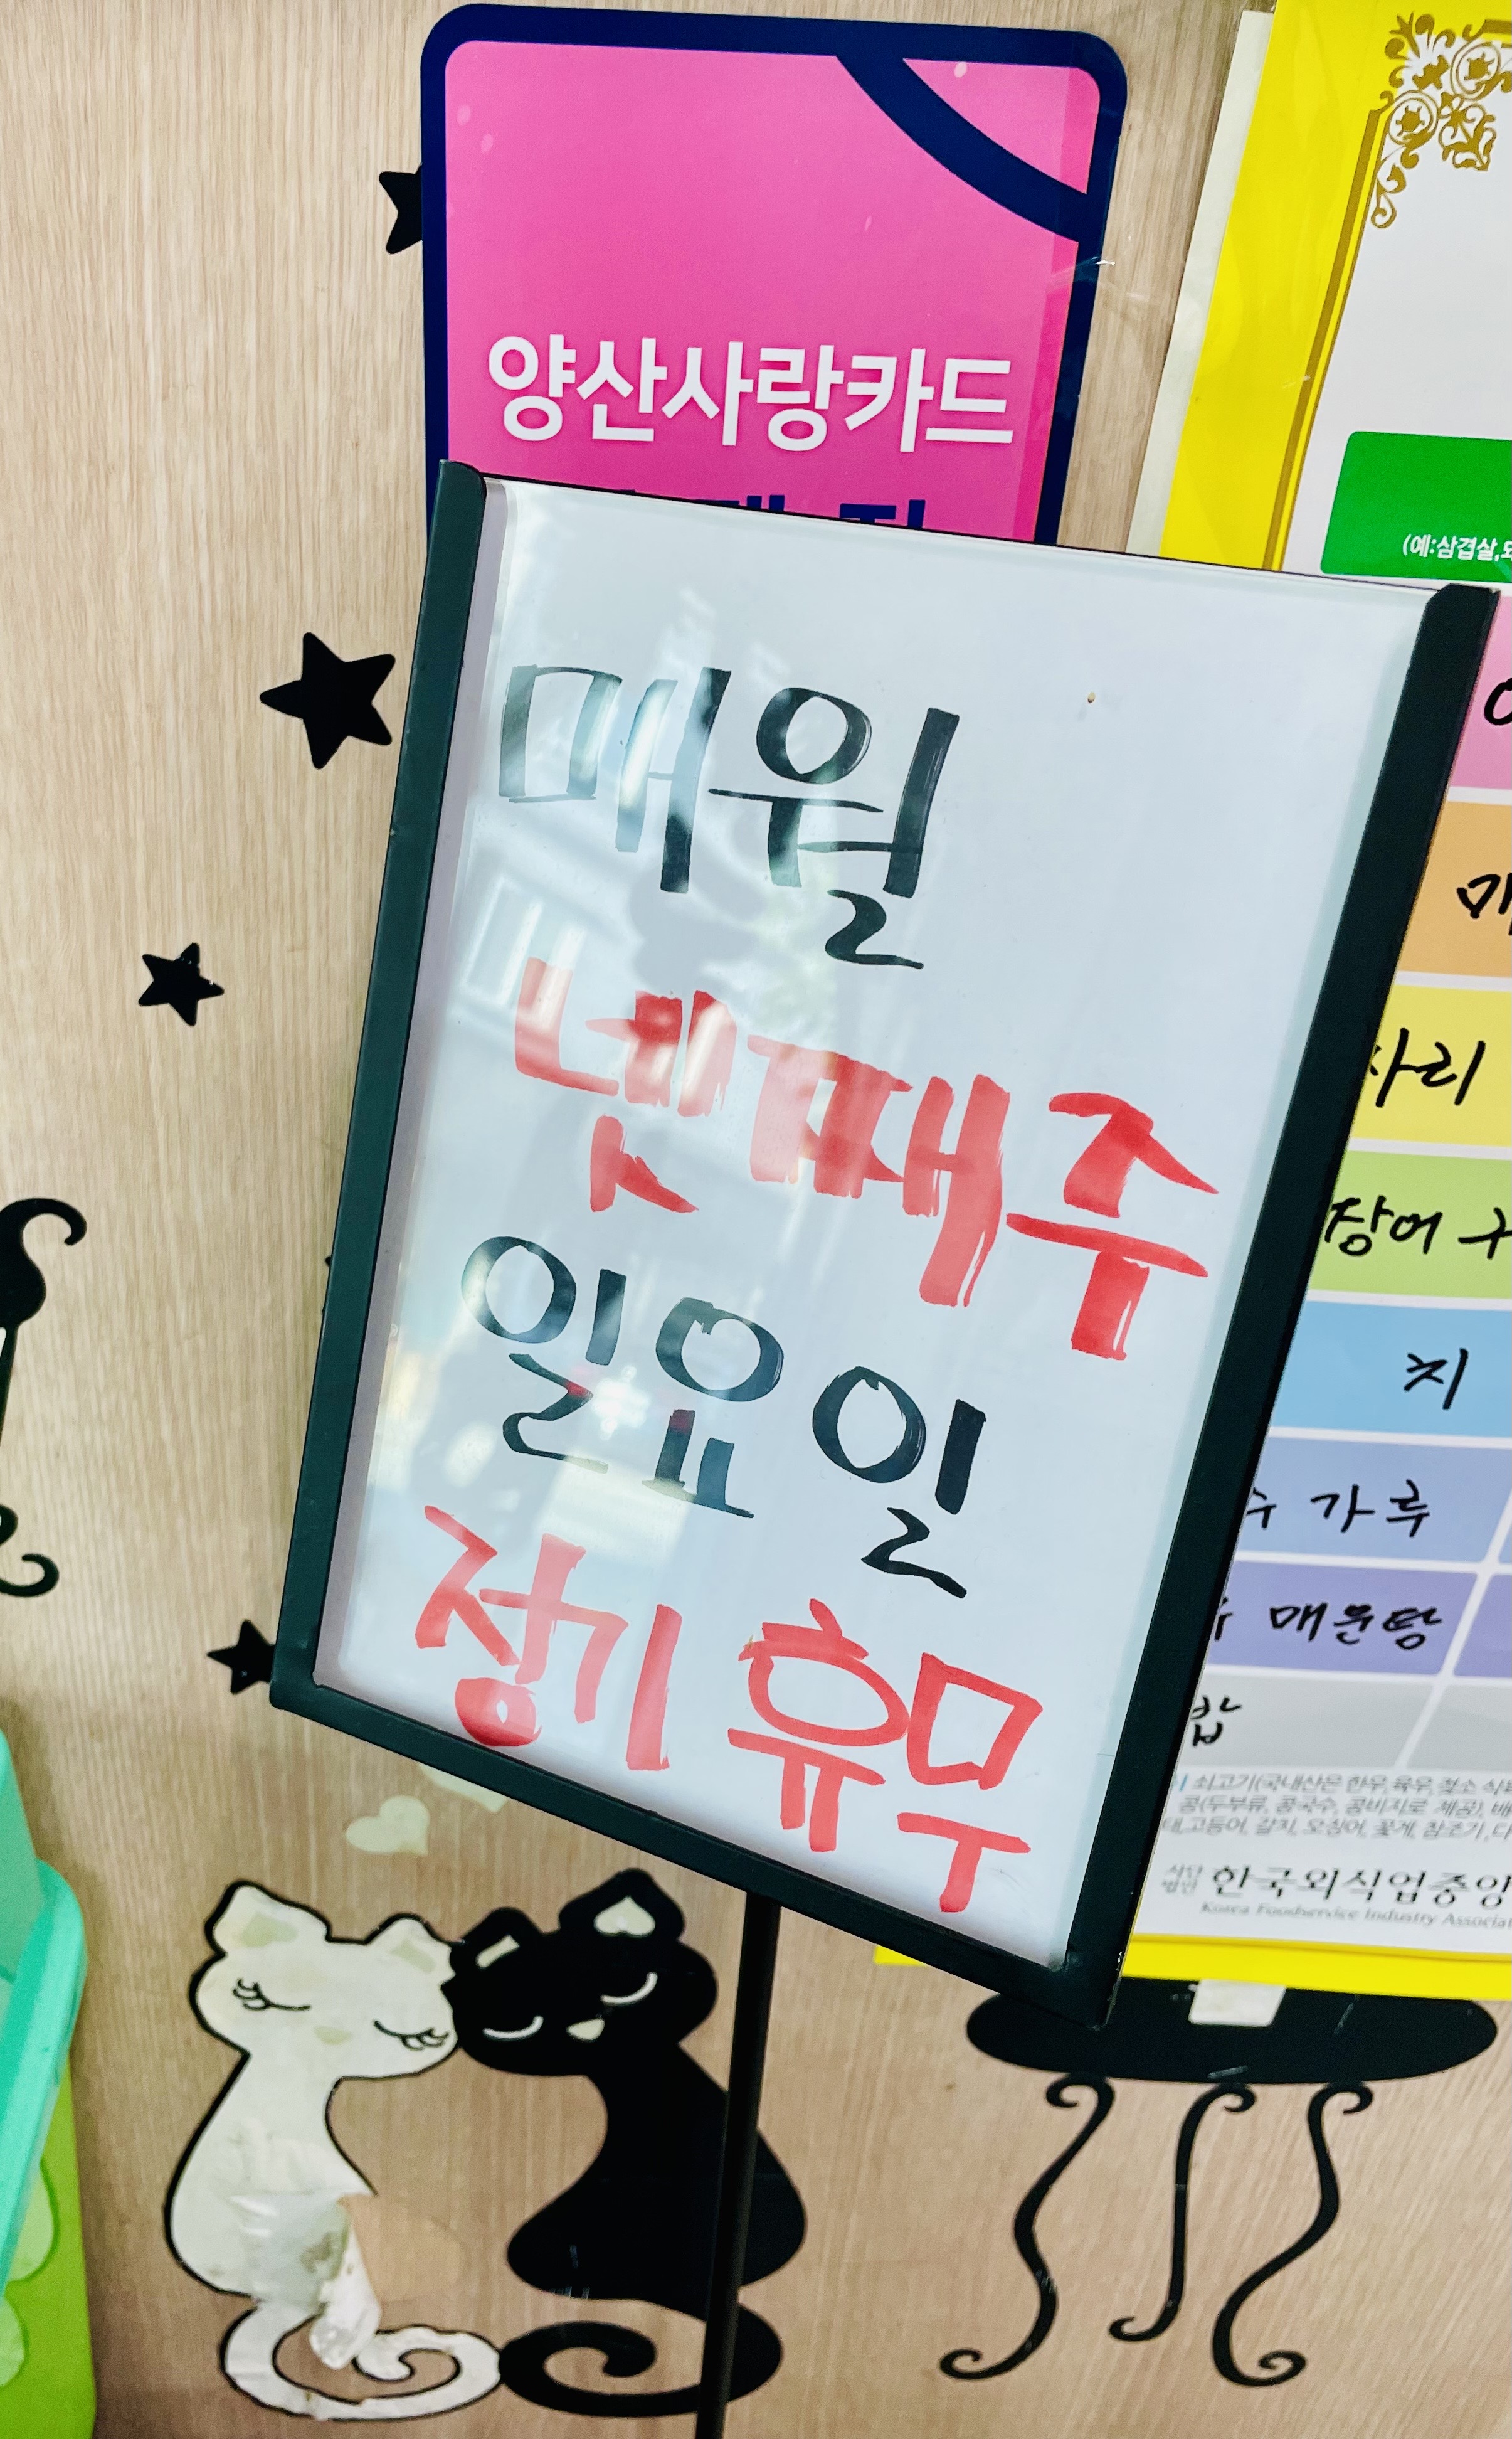 양산사랑카드
매월
넷째주
일요일
정기 휴무
(예:삼겹살,
장어
지
가루
매운탕
밥
쇠고기(국내산은 한우, 육우, 젖소
콩(두부류, 콩국수, 콩비지로 제공),
고등어, 갈치, 오징어, 꽃게, 참조기,
사단
법인
한국외식업중앙
Korea Foodservice Industry